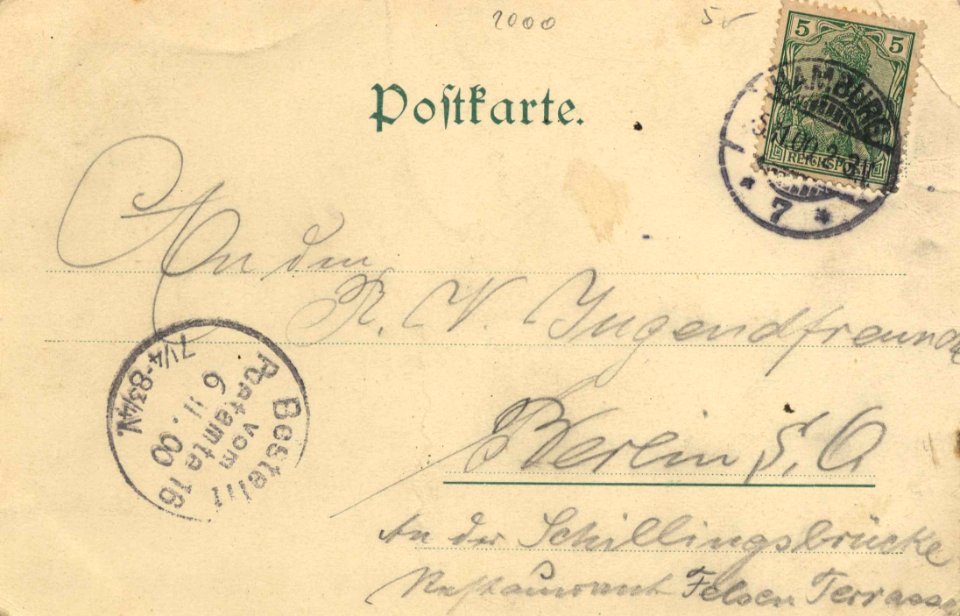 2000 5
5 5
REICHSPOST
HAMBURG
5.11.00.2-3N
* 7 *
Postkarte.
An den
R. V. Jugendfreunde
Berlin S. O
An der Schillingsbrücke
Restaurant Felsen Terrasse
Bestellt
vom
Postamte 16
6 11. 00
7¼-8¾N.